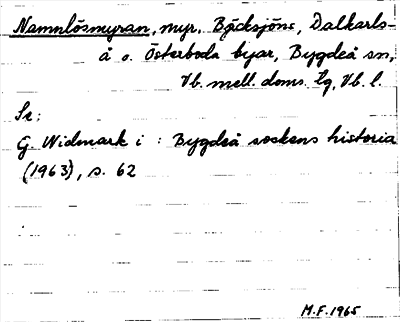 Namnlösmyran, myr, Bäcksjöns, Dalkarls-
å o. Österboda byar, Bygdeå sn,
Vb. mell. doms. lg, Vb. l.
Se:
G. Widmark i : Bygdeå sockens historia
(1963), s. 62
M.F. 1965